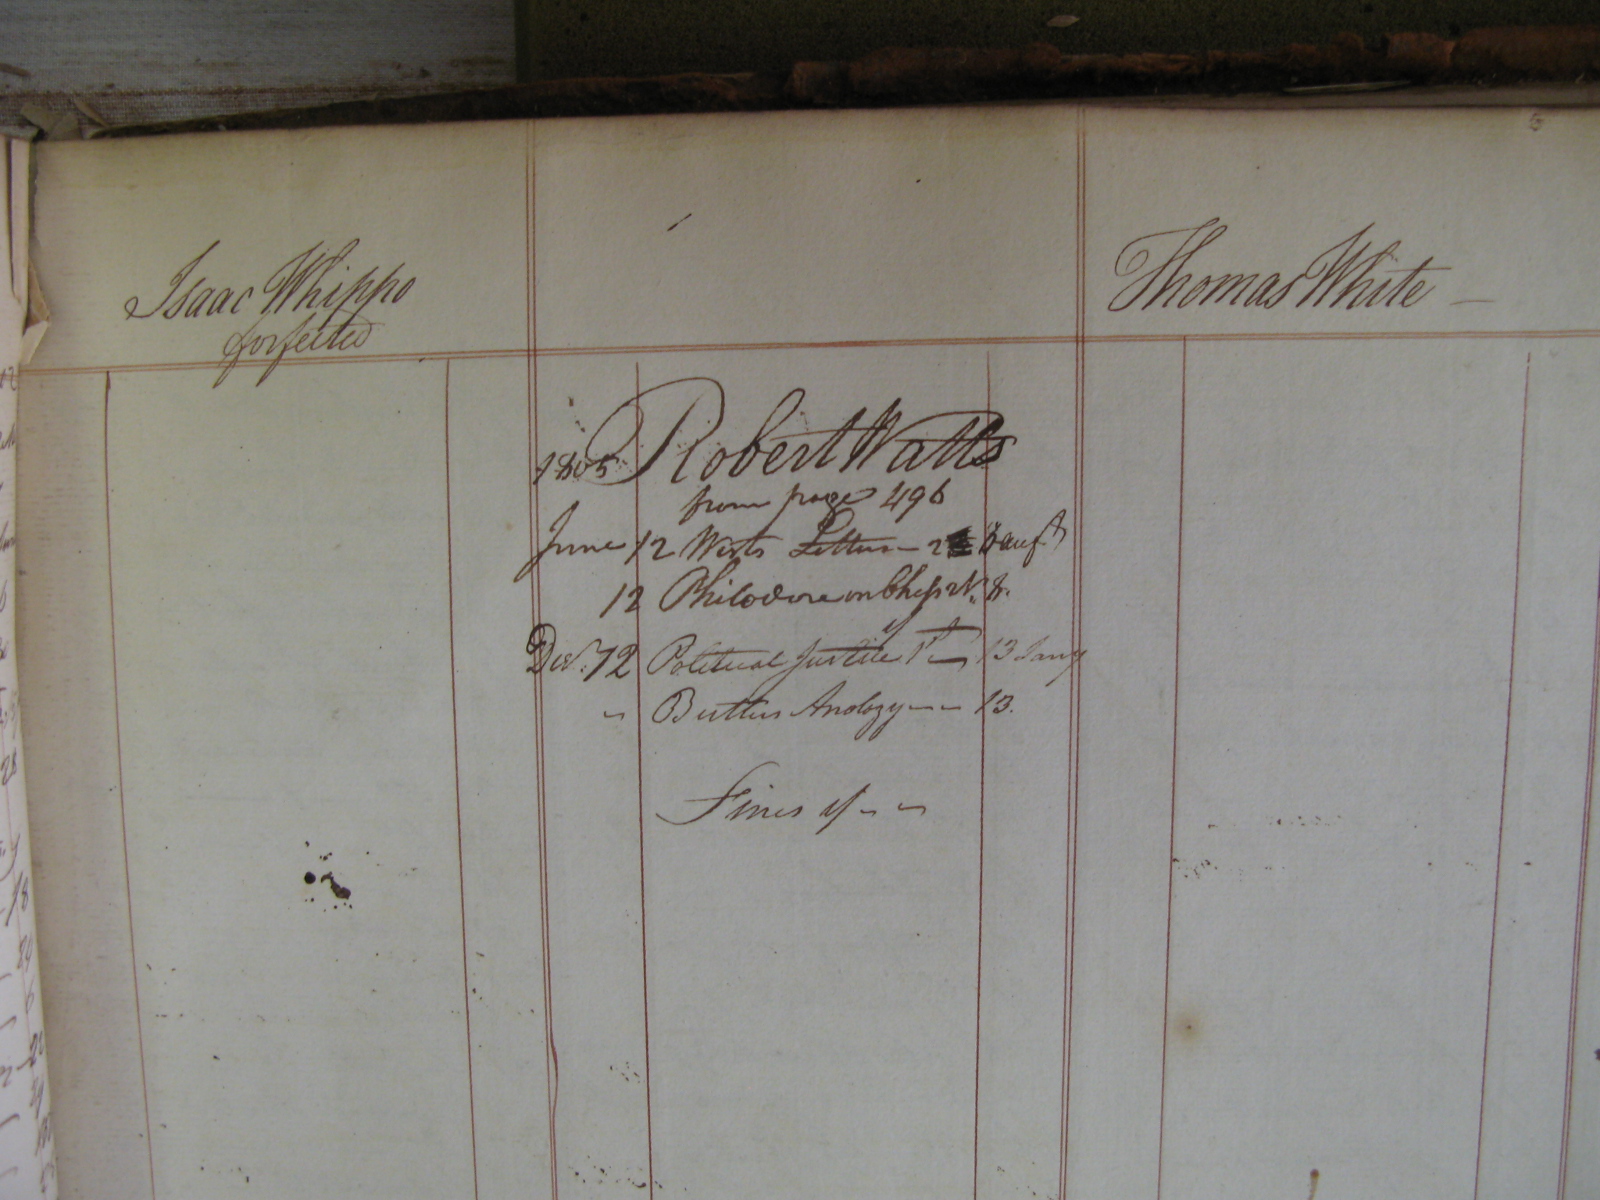 Isaac Whippo
forfeited
Thomas White
1805 Robert Watts
from page 496
June 12 Wirts Letters - 2 8 augt
12 Philodore on Chess 8.
Decr. 12 Political Justice 1st 13 Jany
" Butlers Analogy -- 13.
Fines 1/- -